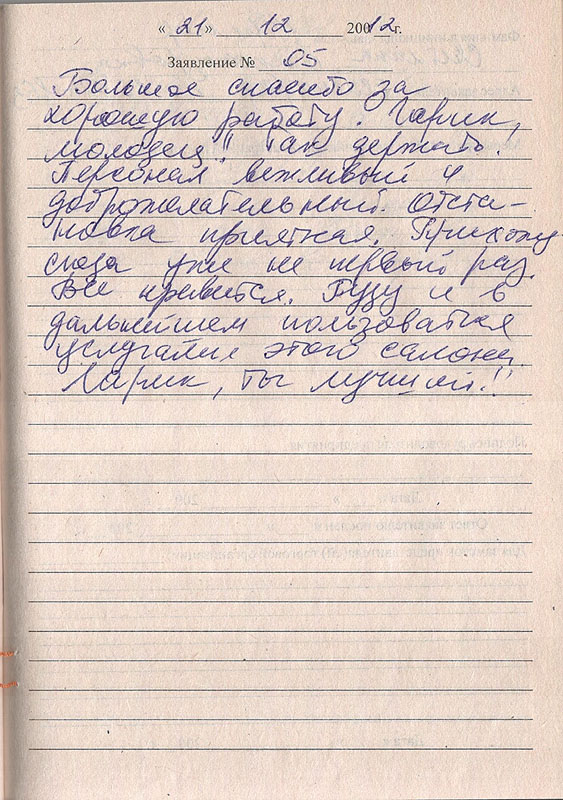 « 21 » 12 20012г.
Заявление № 05
Большое спасибо за
хорошую работу. Гарик,
молодец!! Так держать.
Персонал вежливый и
доброжелательный. Обста-
новка приятная. Прихожу
сюда уже не первый раз.
Все нравится. Буду и в
дальнейшем пользоваться
услугами этого салона.
Гарик, ты лучший!!